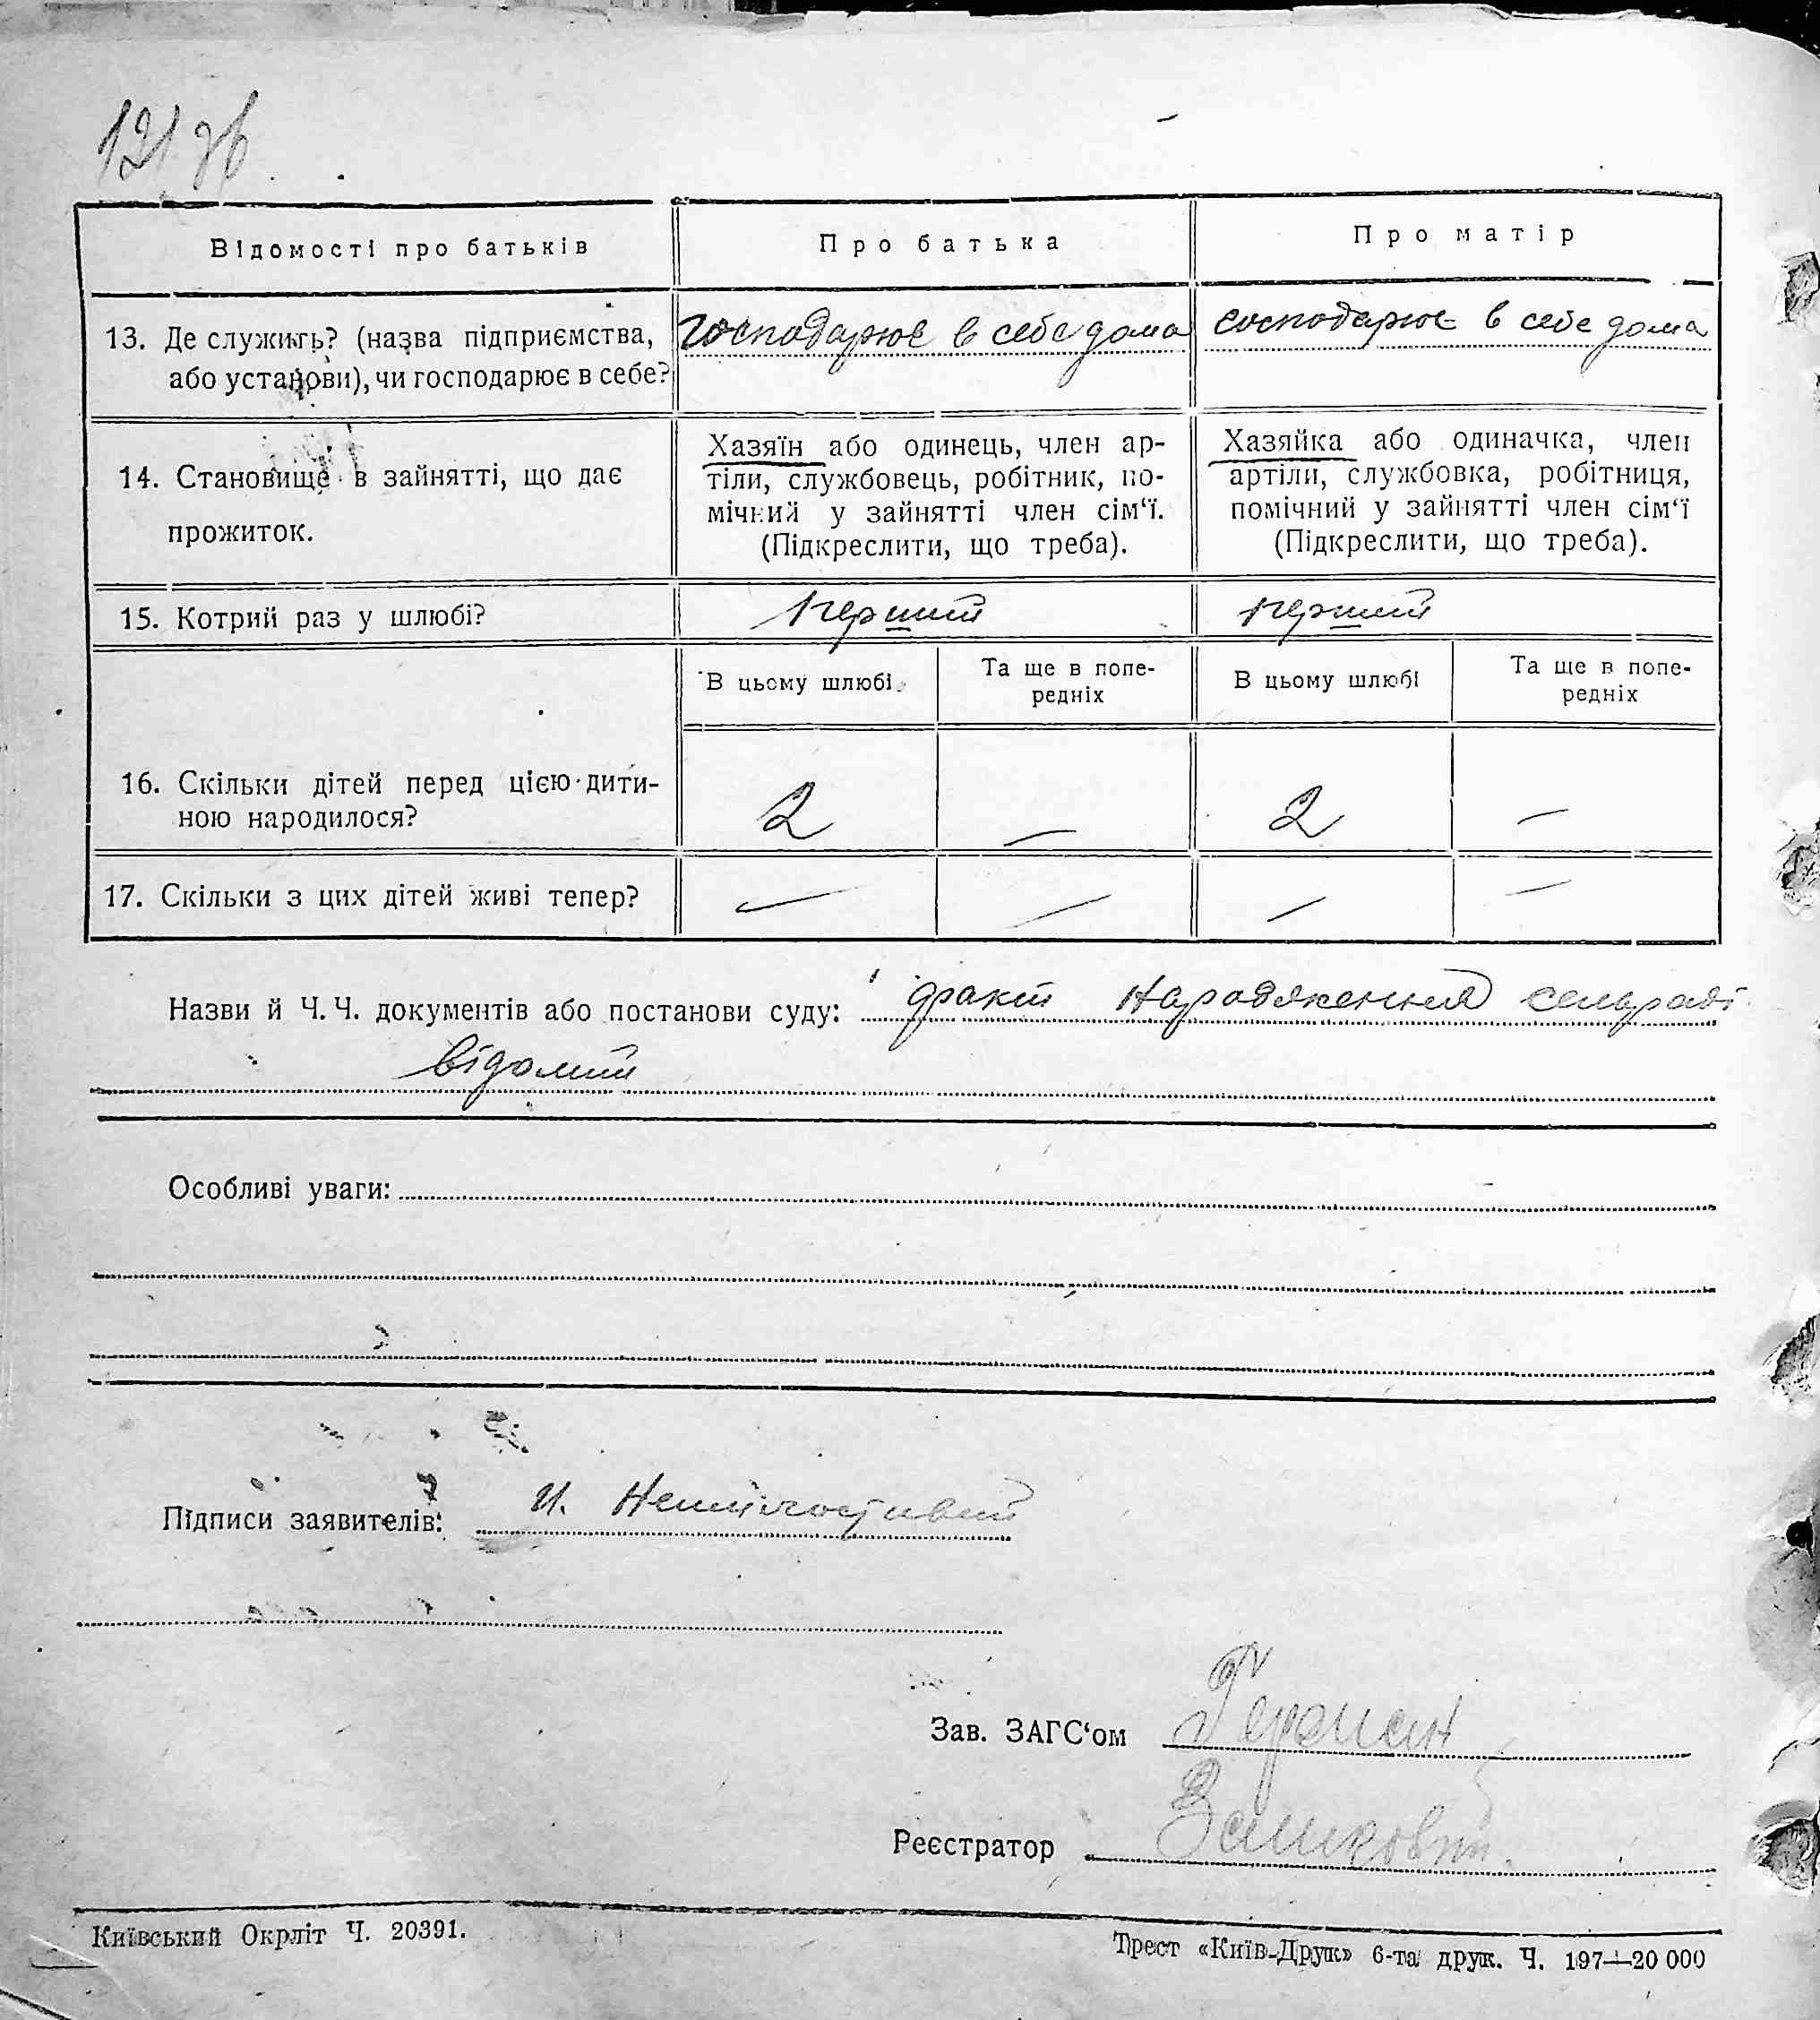 131 зв
Відомості про батьків
Про батька
Про матір
13. Де служить? (назва підприємства,
або установи), чи господарює в себе?
господарює в себе дома
господарює в себе дома
14. Становище в зайнятті, що дає
прожиток.
Хазяїн або одинець, член ар-
тіли, службовець, робітник, по-
мічний у зайнятті член сім‘ї.
(Підкреслити, що треба).
Хазяйка або одиначка, член
артіли, службовка, робітниця,
помічний у зайнятті член сім‘ї
(Підкреслити, що треба).
15. Котрий раз у шлюбі?
перший
перший
В цьому шлюбі
Та ще в попе-
редніх
В цьому шлюбі
Та ще в попе-
редніх
16. Скільки дітей перед цією дити-
ною народилося?
2
—
2
—
17. Скільки з цих дітей живі тепер?
—
—
—
—
Назви й Ч. Ч. документів або постанови суду: факт народження сельраді
відомий
Особливі уваги:
Підписи заявителів: И.
Зав. ЗАГС‘ом
Реєстратор
Київський Окрліт Ч. 20391.
Трест «Київ-Друк» 6-та друк. Ч. 197—20 000